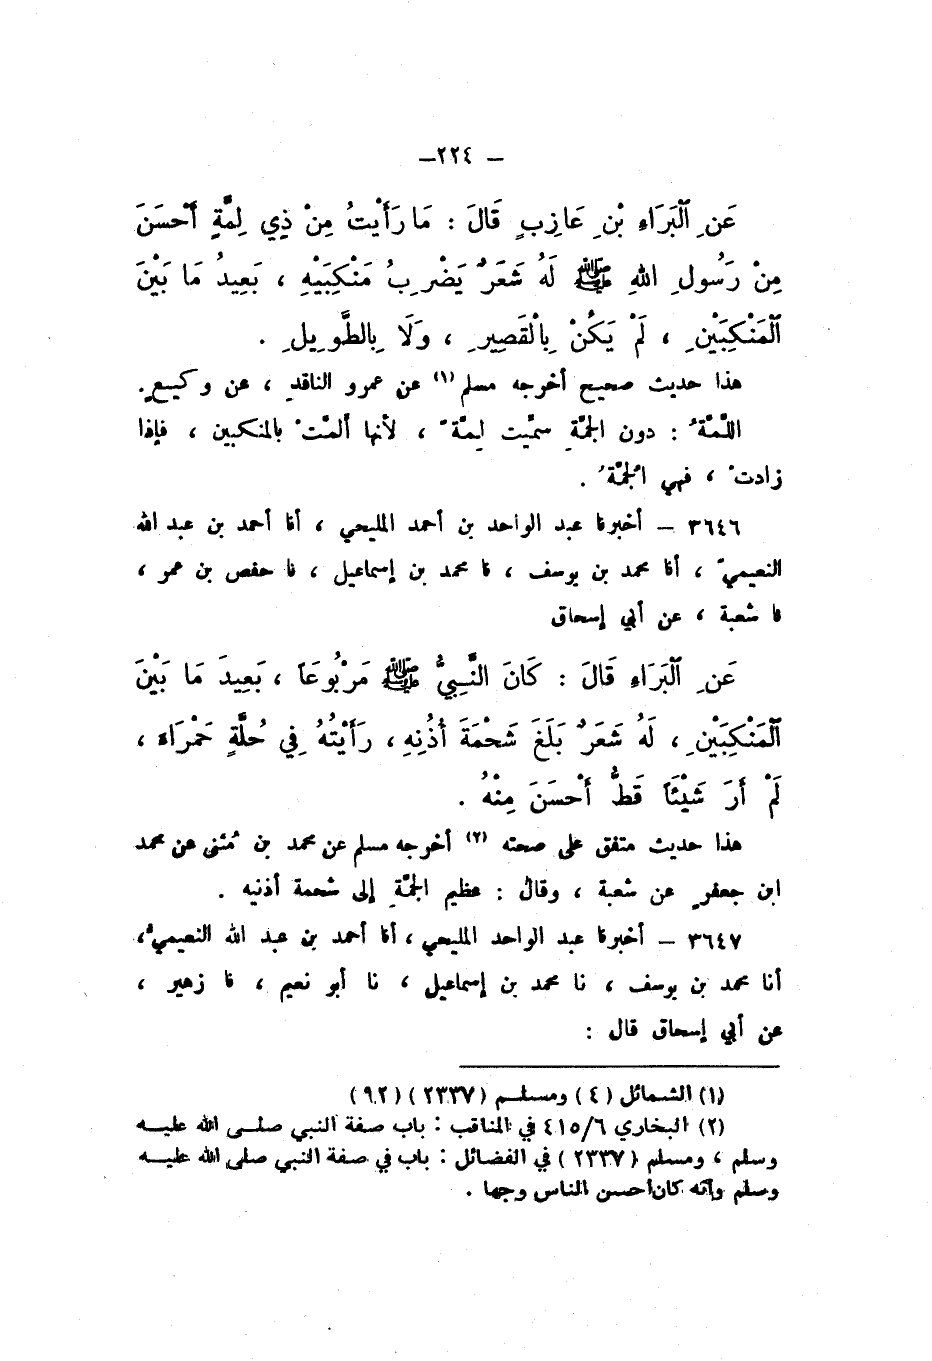 – ٢٢٤–
عَنِ ٱلْبَرَاءِ بْنِ عَازِبٍ قَالَ : مَا رَأَيْتُ مِنْ ذِي لِمَّةٍ أَحْسَنَ
مِنْ رَسُولِ اللهِ ﷺ لَهُ شَعَرٌ يَضْرِبُ مَنْكِبَيْهِ ، بَعِيدُ مَا بَيْنَ
ٱلْمَنْكِبَيْنِ ، لَمْ يَكُنْ بِالْقَصِيرِ ، وَلَا بِالطَّوِيلِ .
هذا حديث صحيح أخرجه مسلم (١) عن عمرو الناقدِ ، عن وكيعٍ.
اللِّمَّةُ : دون الجمَّةِ سمِّيت لِمَّةً ، لأنها ألمَّتْ بالمنكبين ، فإذا
زادتْ ، فهي الجُمَّةُ .
٣٦٤٦ – أخبرنا عبد الواحد بن أحمد المليحي ، أنا أحمد بن عبد الله
النعيميّ ، أنا محمد بن يوسف ، نا محمد بن إسماعيل ، نا حفص بن عمر ،
نا شعبة ، عن أبي إسحاق
عَنِ ٱلْبَرَاءِ قَالَ : كَانَ النَّبِيُّ ﷺ مَرْبُوعَاً ، بَعِيدَ مَا بَيْنَ
ٱلْمَنْكِبَيْنِ ، لَهُ شَعَرٌ بَلَغَ شَحْمَةَ أُذُنِهِ ، رَأَيْتُهُ فِي حُلَّةٍ حَمْرَاءَ ،
لَمْ أَرَ شَيْئَاً قَطُّ أَحْسَنَ مِنْهُ .
هذا حديث متفق على صحته (٢) أخرجه مسلم عن محمد بن مُثنى عن محمد
ابن جعفرٍ عن شعبة ، وقال : عظيم الجمَّةِ إلى شحمة أذنيه .
٣٦٤٧ – أخبرنا عبد الواحد المليحي ، أنا أحمد بن عبد الله النعيميُّ،
أنا محمد بن يوسف ، نا محمد بن إسماعيل ، نا أبو نعيم ، نا زهير ،
عن أبي إسحاق قال :
(١) الشمائل ( ٤ ) ومسلم ( ٢٣٣٧ ) ( ٩٢ )
(٢) البخاري ٤١٥/٦ في المناقب : باب صفة النبي صلى الله عليه
وسلم ، ومسلم ( ٢٣٣٧ ) في الفضائل : باب في صفة النبي صلى الله عليه
وسلم وأنه كان أحسن الناس وجها .